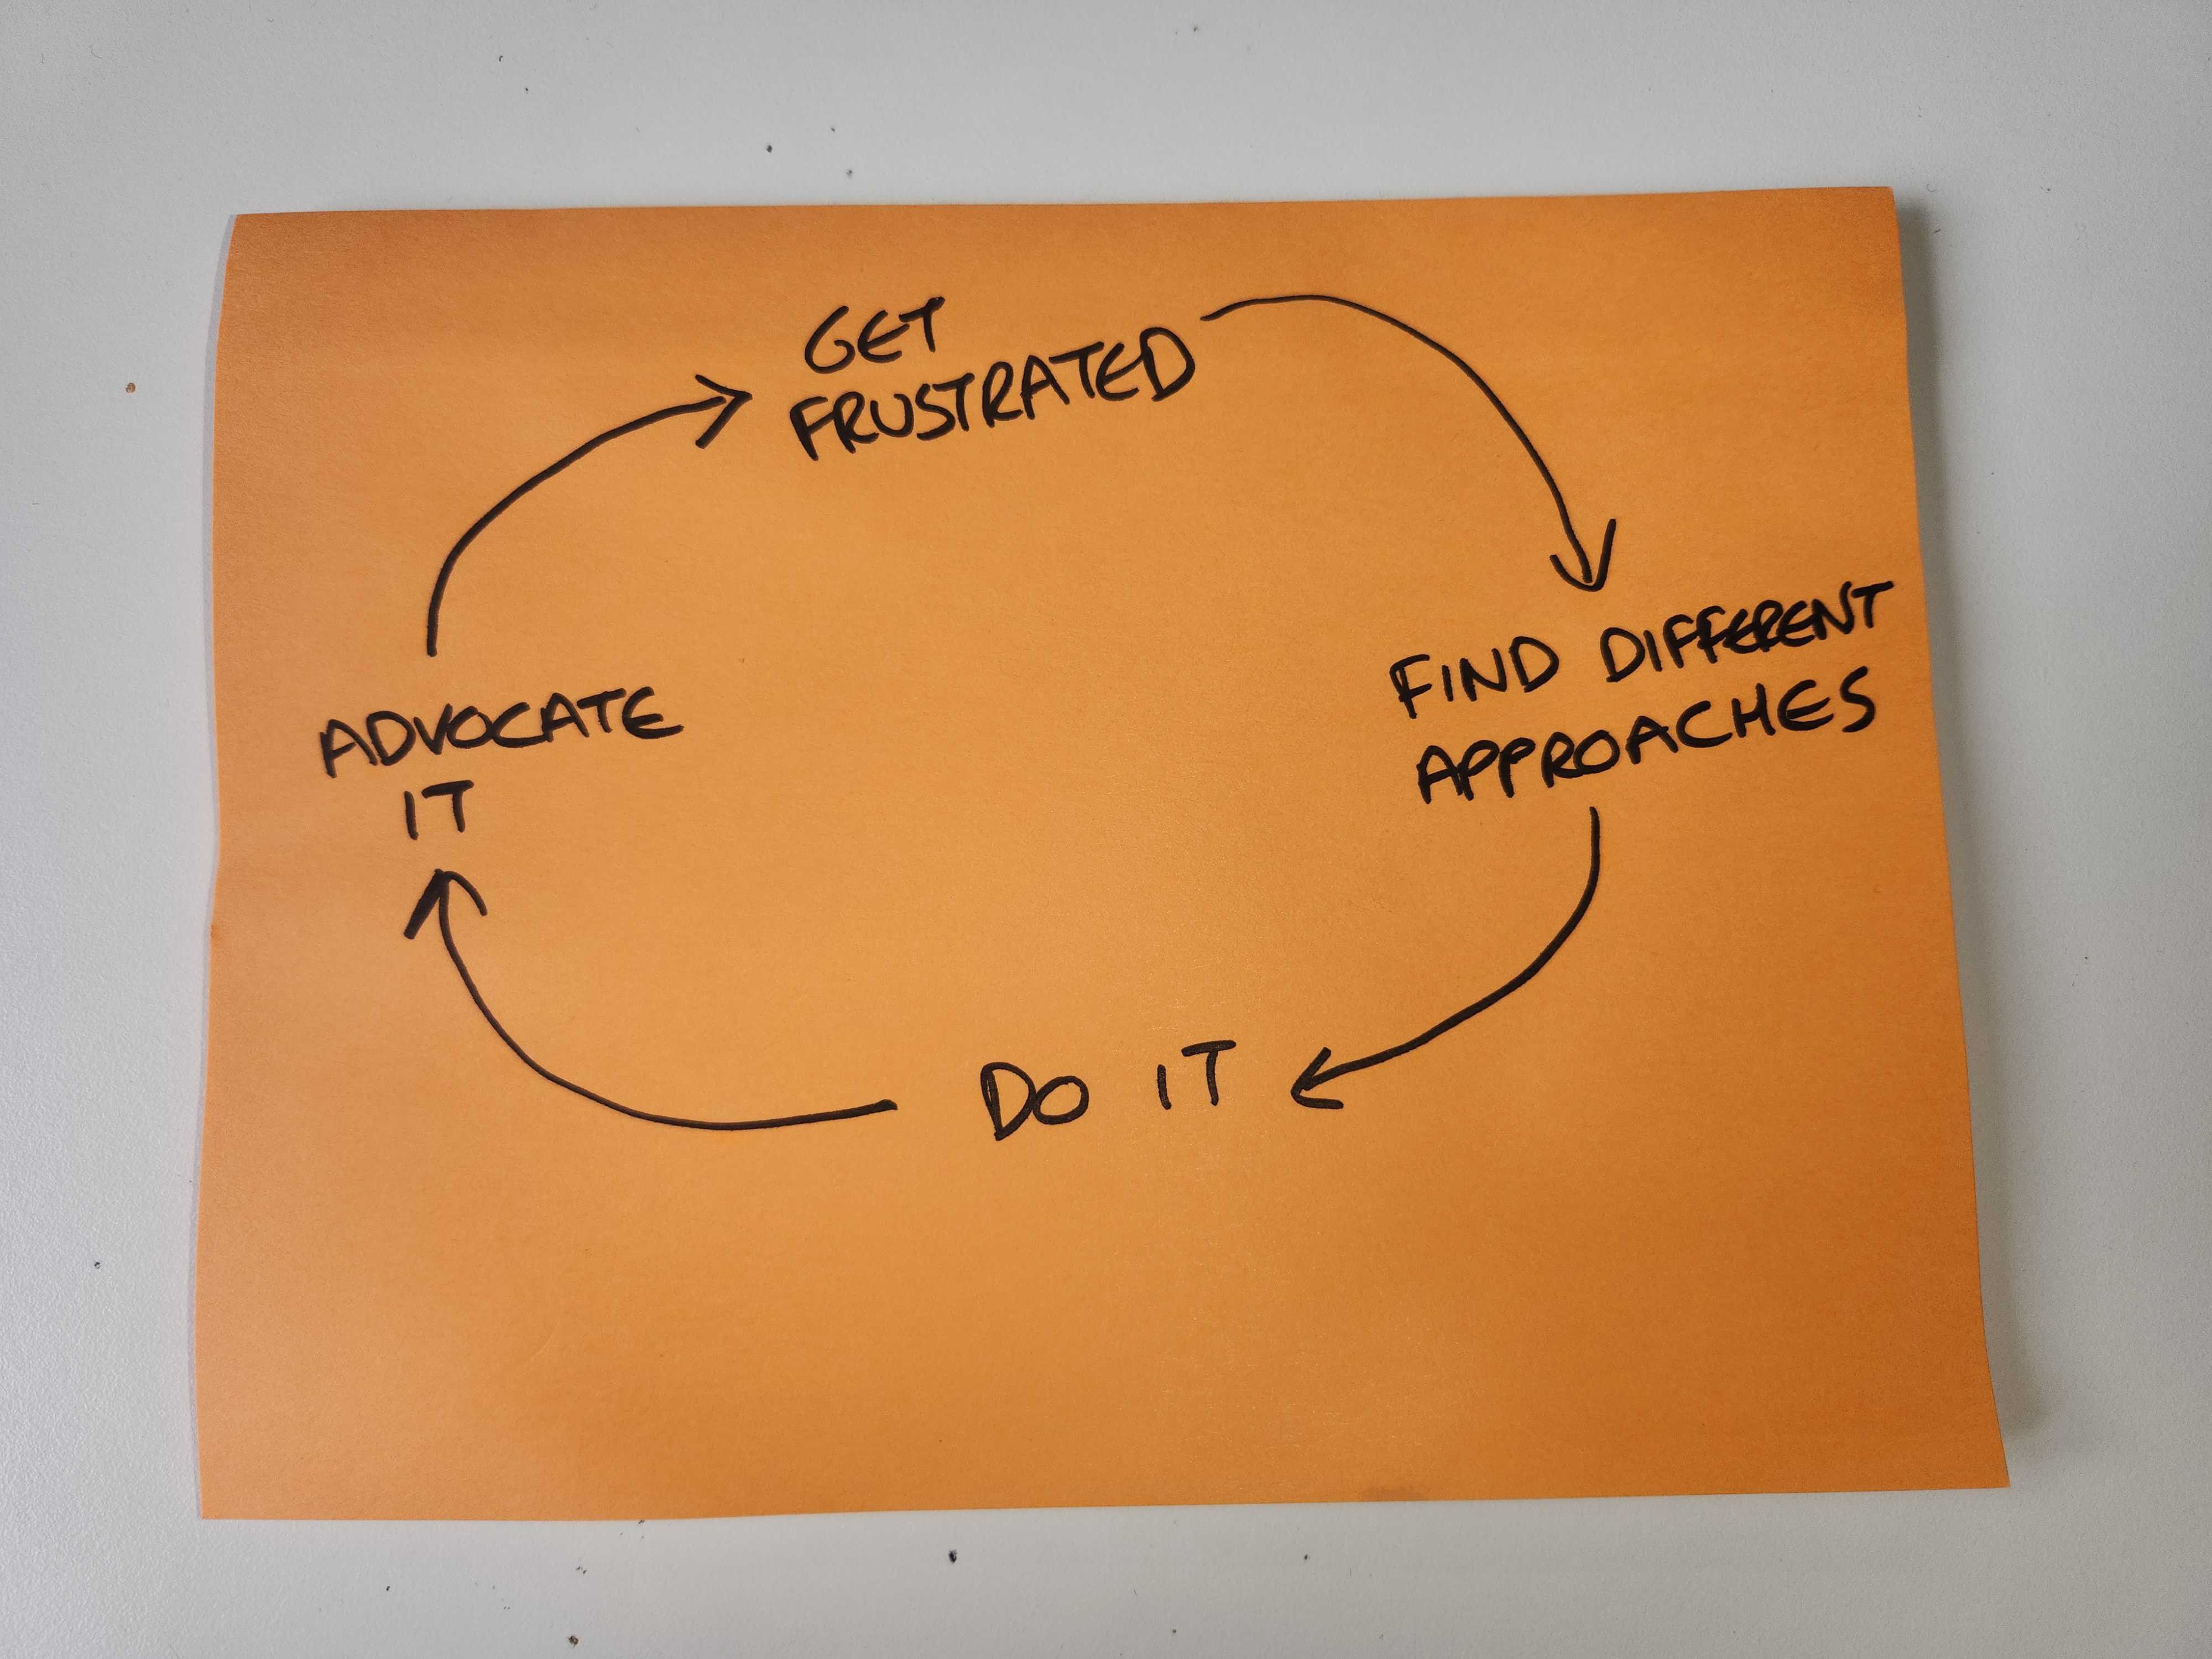 GET
FRUSTRATED
FIND DIFFERENT
APPROACHES
DO IT
ADVOCATE
IT